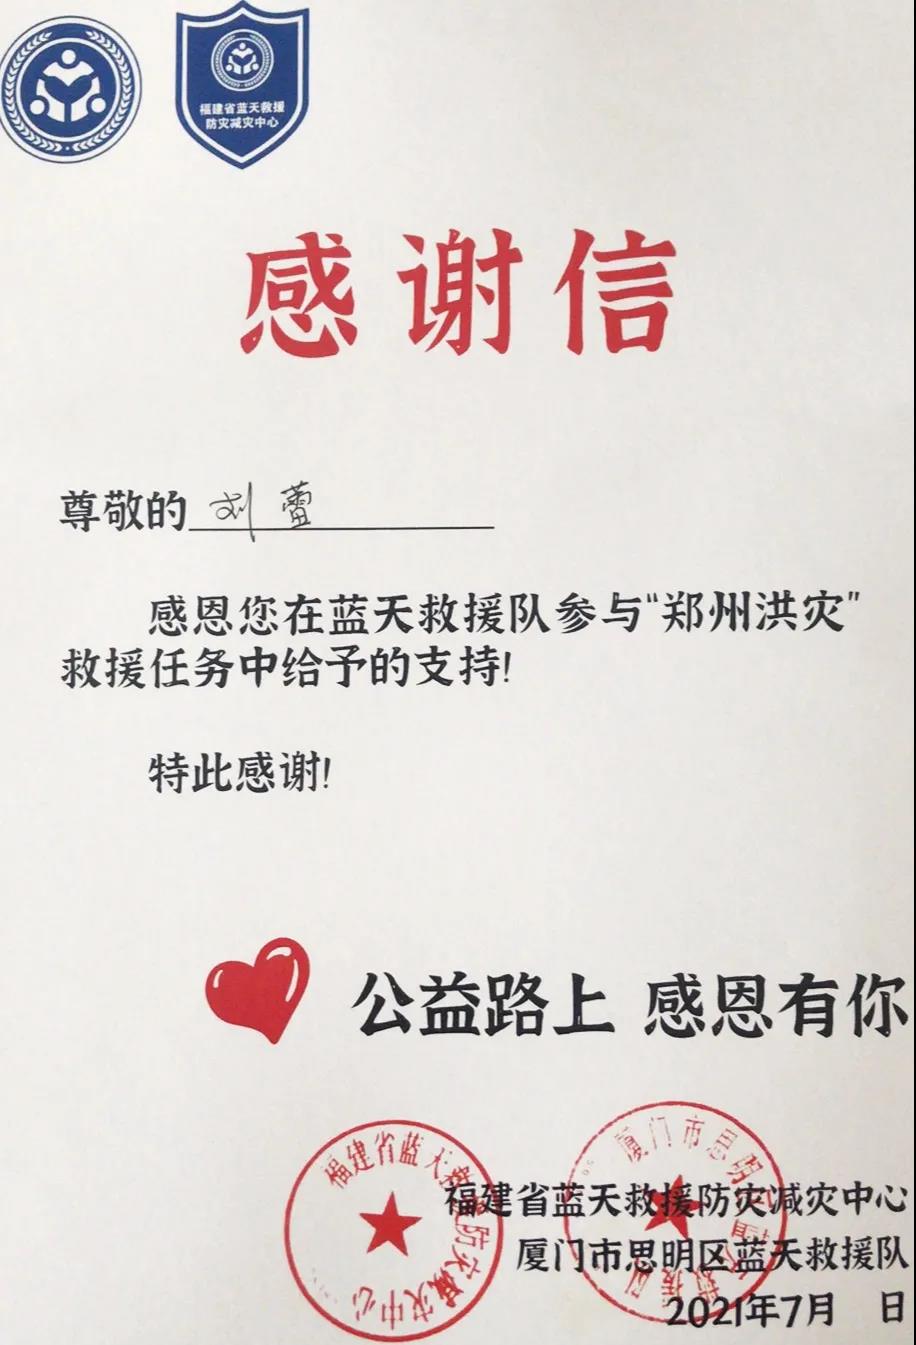 福建省蓝天救援
防灾减灾中心
感谢信
尊敬的 刘蕾
感恩您在蓝天救援队参与“郑州洪灾”
救援任务中给予的支持!
特此感谢!
公益路上 感恩有你
福建省蓝天救援防灾减灾中心
厦门市思明区蓝天救援队
2021年7月 日
福建省蓝天救援防灾减灾中心
厦门市思明区蓝天救援队